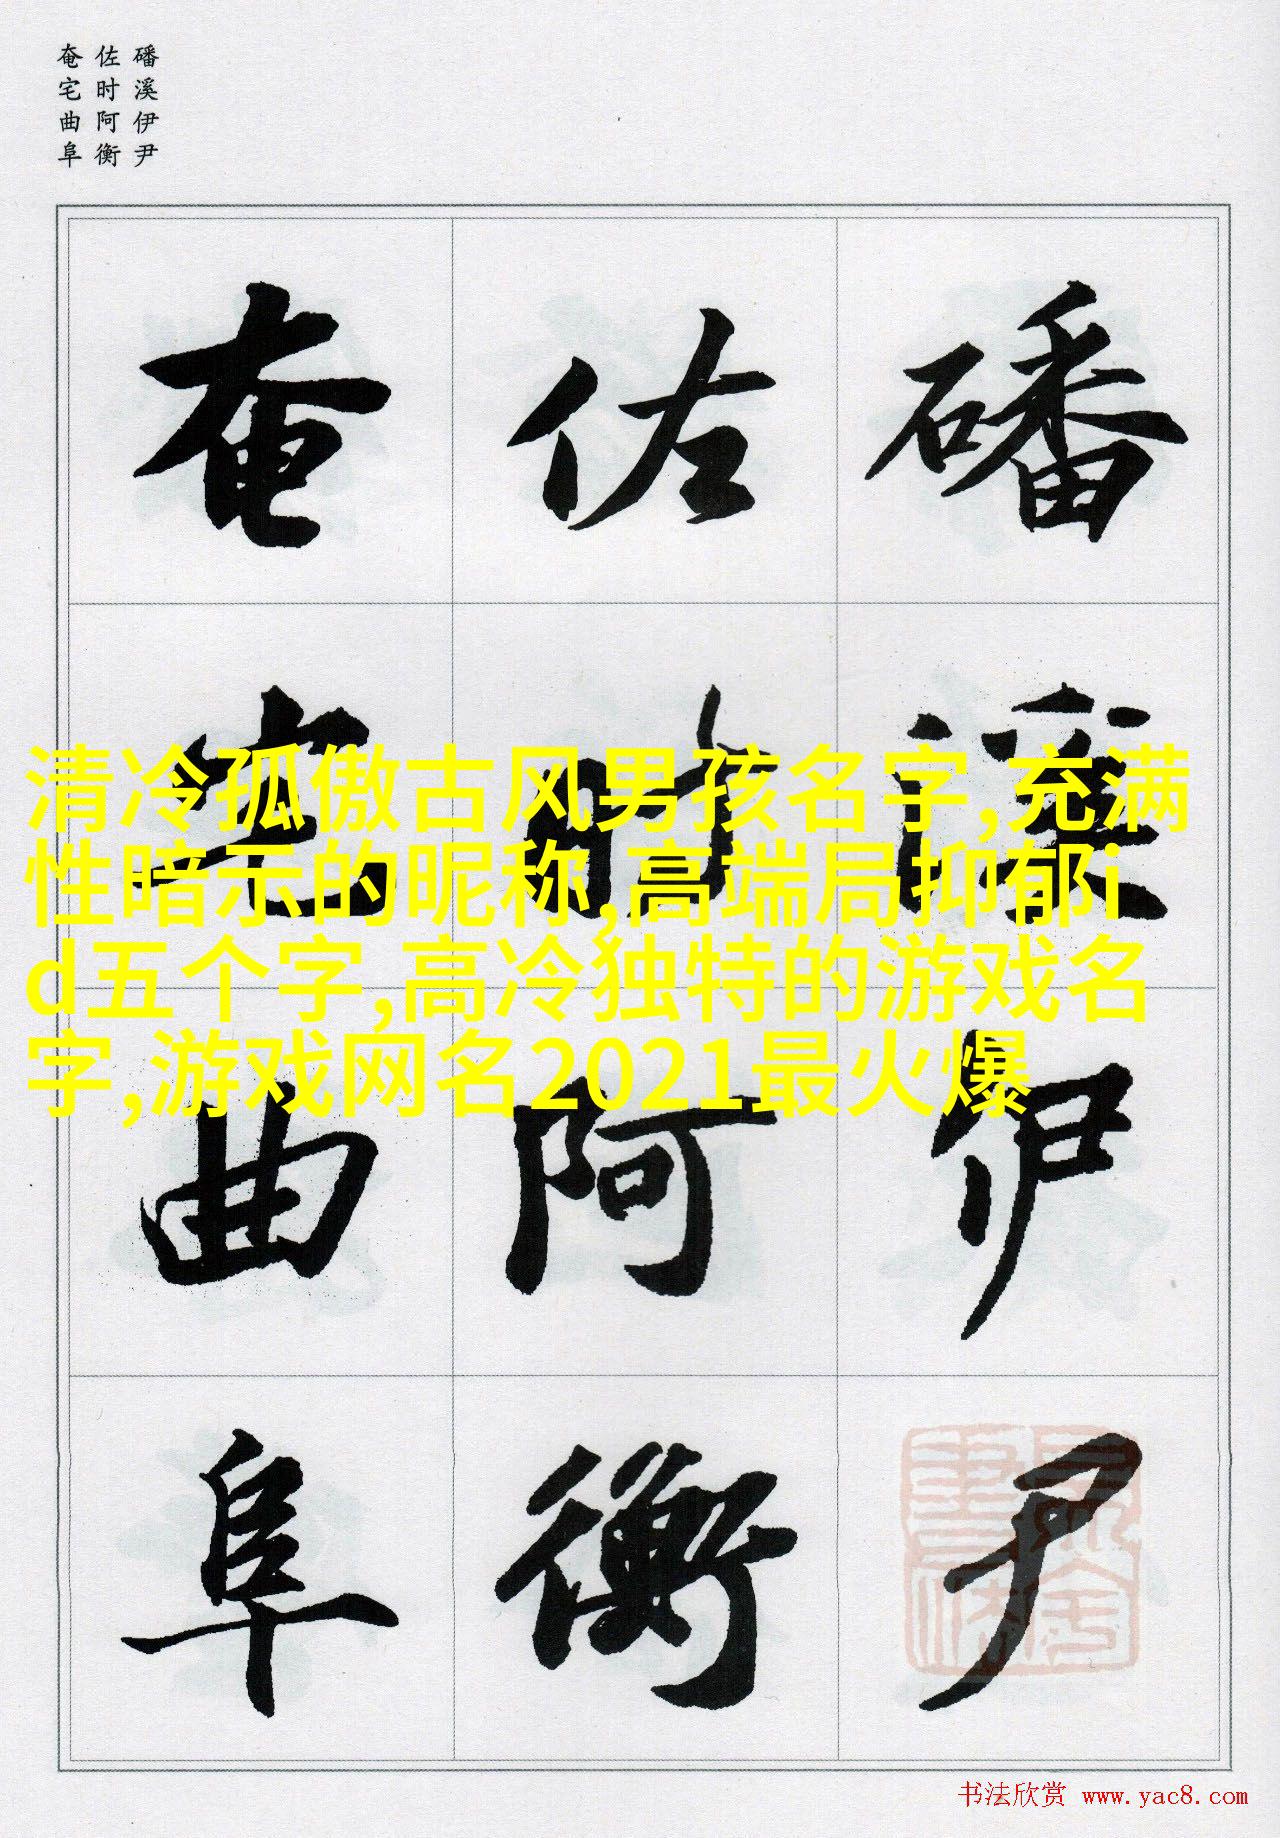 磻溪伊尹
佐时阿衡
奄宅曲阜
磻溪伊尹
佐时阿衡
奄宅曲阜
清冷孤傲古风男孩名字,充满
性暗示的昵称,高端局抑郁i
d五个字,高冷独特的游戏名
字,游戏网名2021最火爆
书法欣赏 www.yac8.com